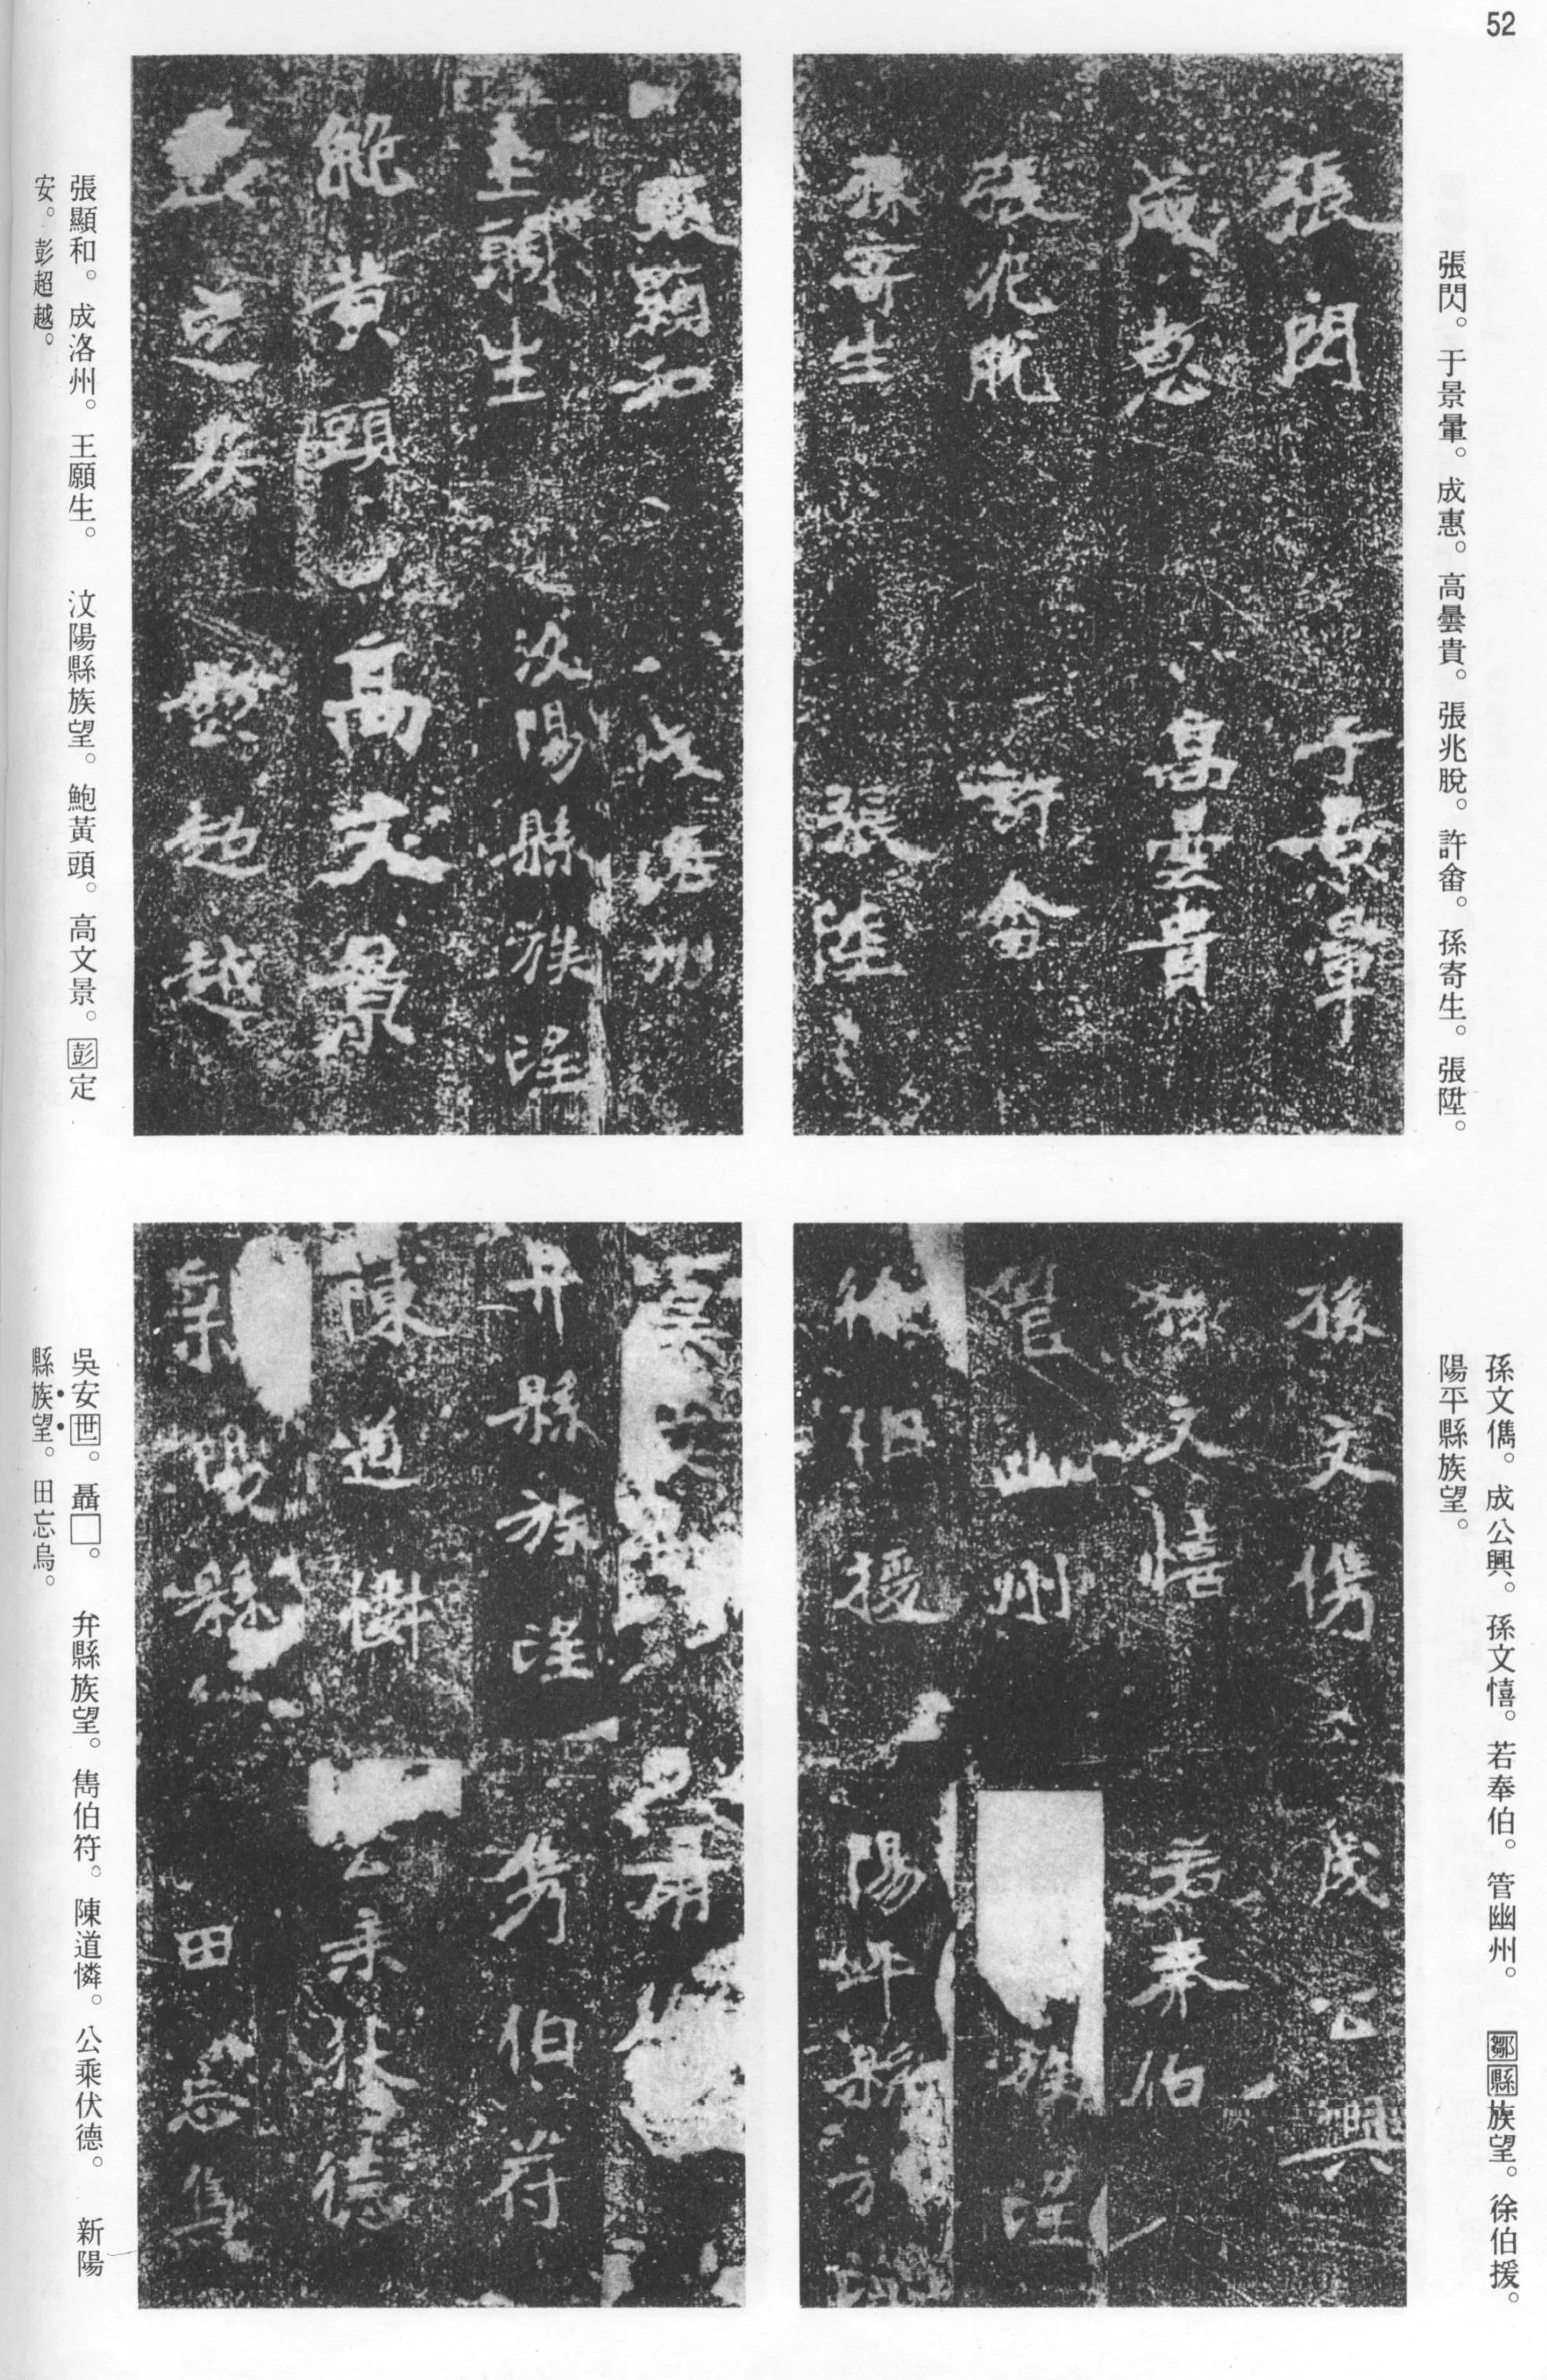 52
張閃。于景暈。成惠。高曇貴。張兆脫。許畬。孫寄生。張陞。
張閃
于景暈
成惠
高曇貴
張兆脫
許畬
孫寄生
張陞
張顯和。成洛州。王願生。　汶陽縣族望。鮑黃頭。高文景。彭定
安。彭超越。
張顯和
成洛州
王願生
汶陽縣族望
鮑黃頭
高文景
定安
超越
孫文儁。成公興。孫文憘。若奉伯。管幽州。　鄒縣族望。徐伯援。
陽平縣族望。
孫文儁
成公興
孫文憘
若奉伯
管幽州
族望
徐伯援
陽平縣族望
吳安世。聶□。　弁縣族望。雋伯符。陳道憐。公乘伏德。　新陽
縣族望。田忘烏。
吳安
弁縣族望
雋伯符
陳道憐
公乘伏德
新陽縣
田忘烏